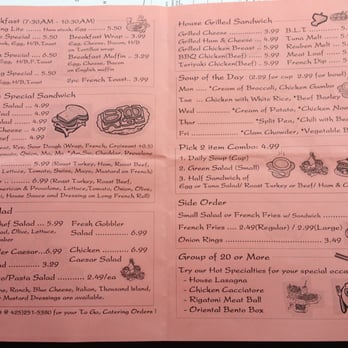 kfast (7:30AM - 10:30AM)
ing Lite ... Ham steak, Egg ... 5.50
Special .... 5.50
Egg, H/B,Toast
Special .... 6.50
Egg, H/B/P,Toast
Special .... 5.50
Breakfast Wrap . 3.99
Egg, Cheese, Bacon, H/B
on Tortillas wrap
Breakfast Muffin . 3.29
Egg, Cheese, Bacon
on English muffin
2pc French Toast . 3.99
Special Sandwich
4.99
4.99
Salad .... 4.99
Cheese .. 4.99
4.99
5.99 (Roast Turkey, Ham, Roast Beef,
Lettuce, Tomato, Swiss, Mayo, Mustard on French)
6.99 (Roast Turkey, Roast Beef,
American & Provolone, Lettuce, Tomato, Onion, Olive,
House Sauce and Dressing on Long French Roll)
lad
Chef Salad .... 5.99
Olive, Lettuce,
omber
Fresh Gobbler
Salad .... 5.99
Caesar..6.99
Chicken ....... 6.99
Caesar Salad
3.29
o/Pasta Salad ....... 2.49/ea
Ranch, Blue Cheese, Italian, Thousand Island,
Mustard Dressings are available.
@ 425)251-5380 for To Go, Catering Orders !
House Grilled Sandwich
Grilled Cheese ..... 3.99
Grilled Ham & Cheese .. 4.99
Grilled Chicken Breast .. 5.99
BBQ Chicken(Beef) ..... 5.99
Teriyaki Chicken(Beef) .. 5.99
B.L.T.
Tuna Melt
Reuben Melt
Meat Loaf
French Dip
Soup of the Day (2.29 for cup 2.99 for bowl)
Mon ..... *Cream of Broccoli, Chicken Gumbo
Tue ... Chicken with White Rice, *Beef Barley
Wed ....... *Cream of Potato, *Chicken Noo
Thur ......... *Split Pea, *Chili with Bee
Fri ........ *Clam Chowder, *Vegetable B
Pick 2 item Combo: 4.99
1. Daily Soup (Cup)
2. Green Salad (Small)
3. Half Sandwich of
Egg or Tuna Salad/ Roast Turkey or Beef/ Ham & C
Side Order
Small Salad or French Fries w/ Sandwich
French Fries .... 2.49(Regular) / 2.99(Large)
Onion Rings ....... 3.49
Group of 20 or More
Try our Hot Specialties for your special occa
- House Lasagna
- Chicken Cacciatore
- Rigatoni Meat Ball
- Oriental Bento Box